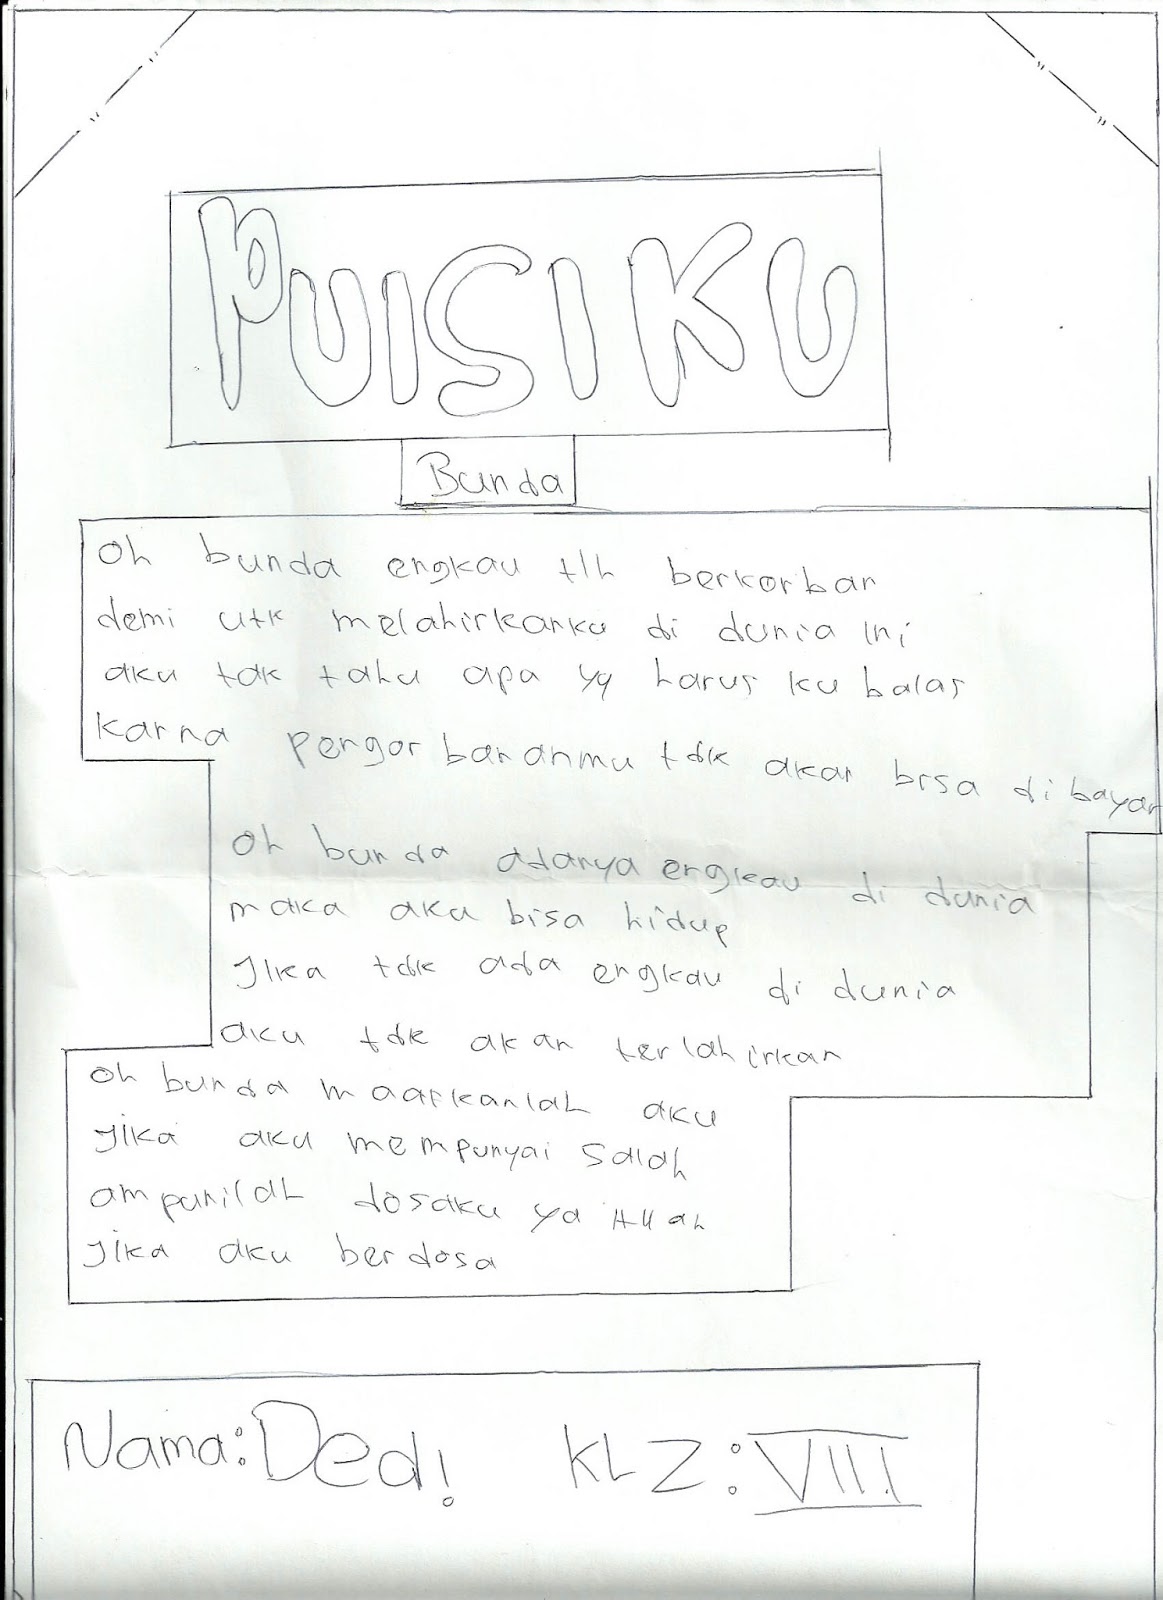 PUISIKU
Bunda
Oh bunda engkau tlh berkorban
demi utk melahirkanku di dunia ini
aku tdk tahu apa yg harus ku balas
karna pengorbananmu tdk akan bisa di bayar
Oh bunda adanya engkau di dunia
maka aku bisa hidup
Jika tdk ada engkau di dunia
aku tdk akan terlahirkan
Oh bunda maafkanlah aku
jika aku mempunyai salah
ampunilah dosaku ya Allah
jika aku berdosa
Nama: Dedi KLZ: VIII